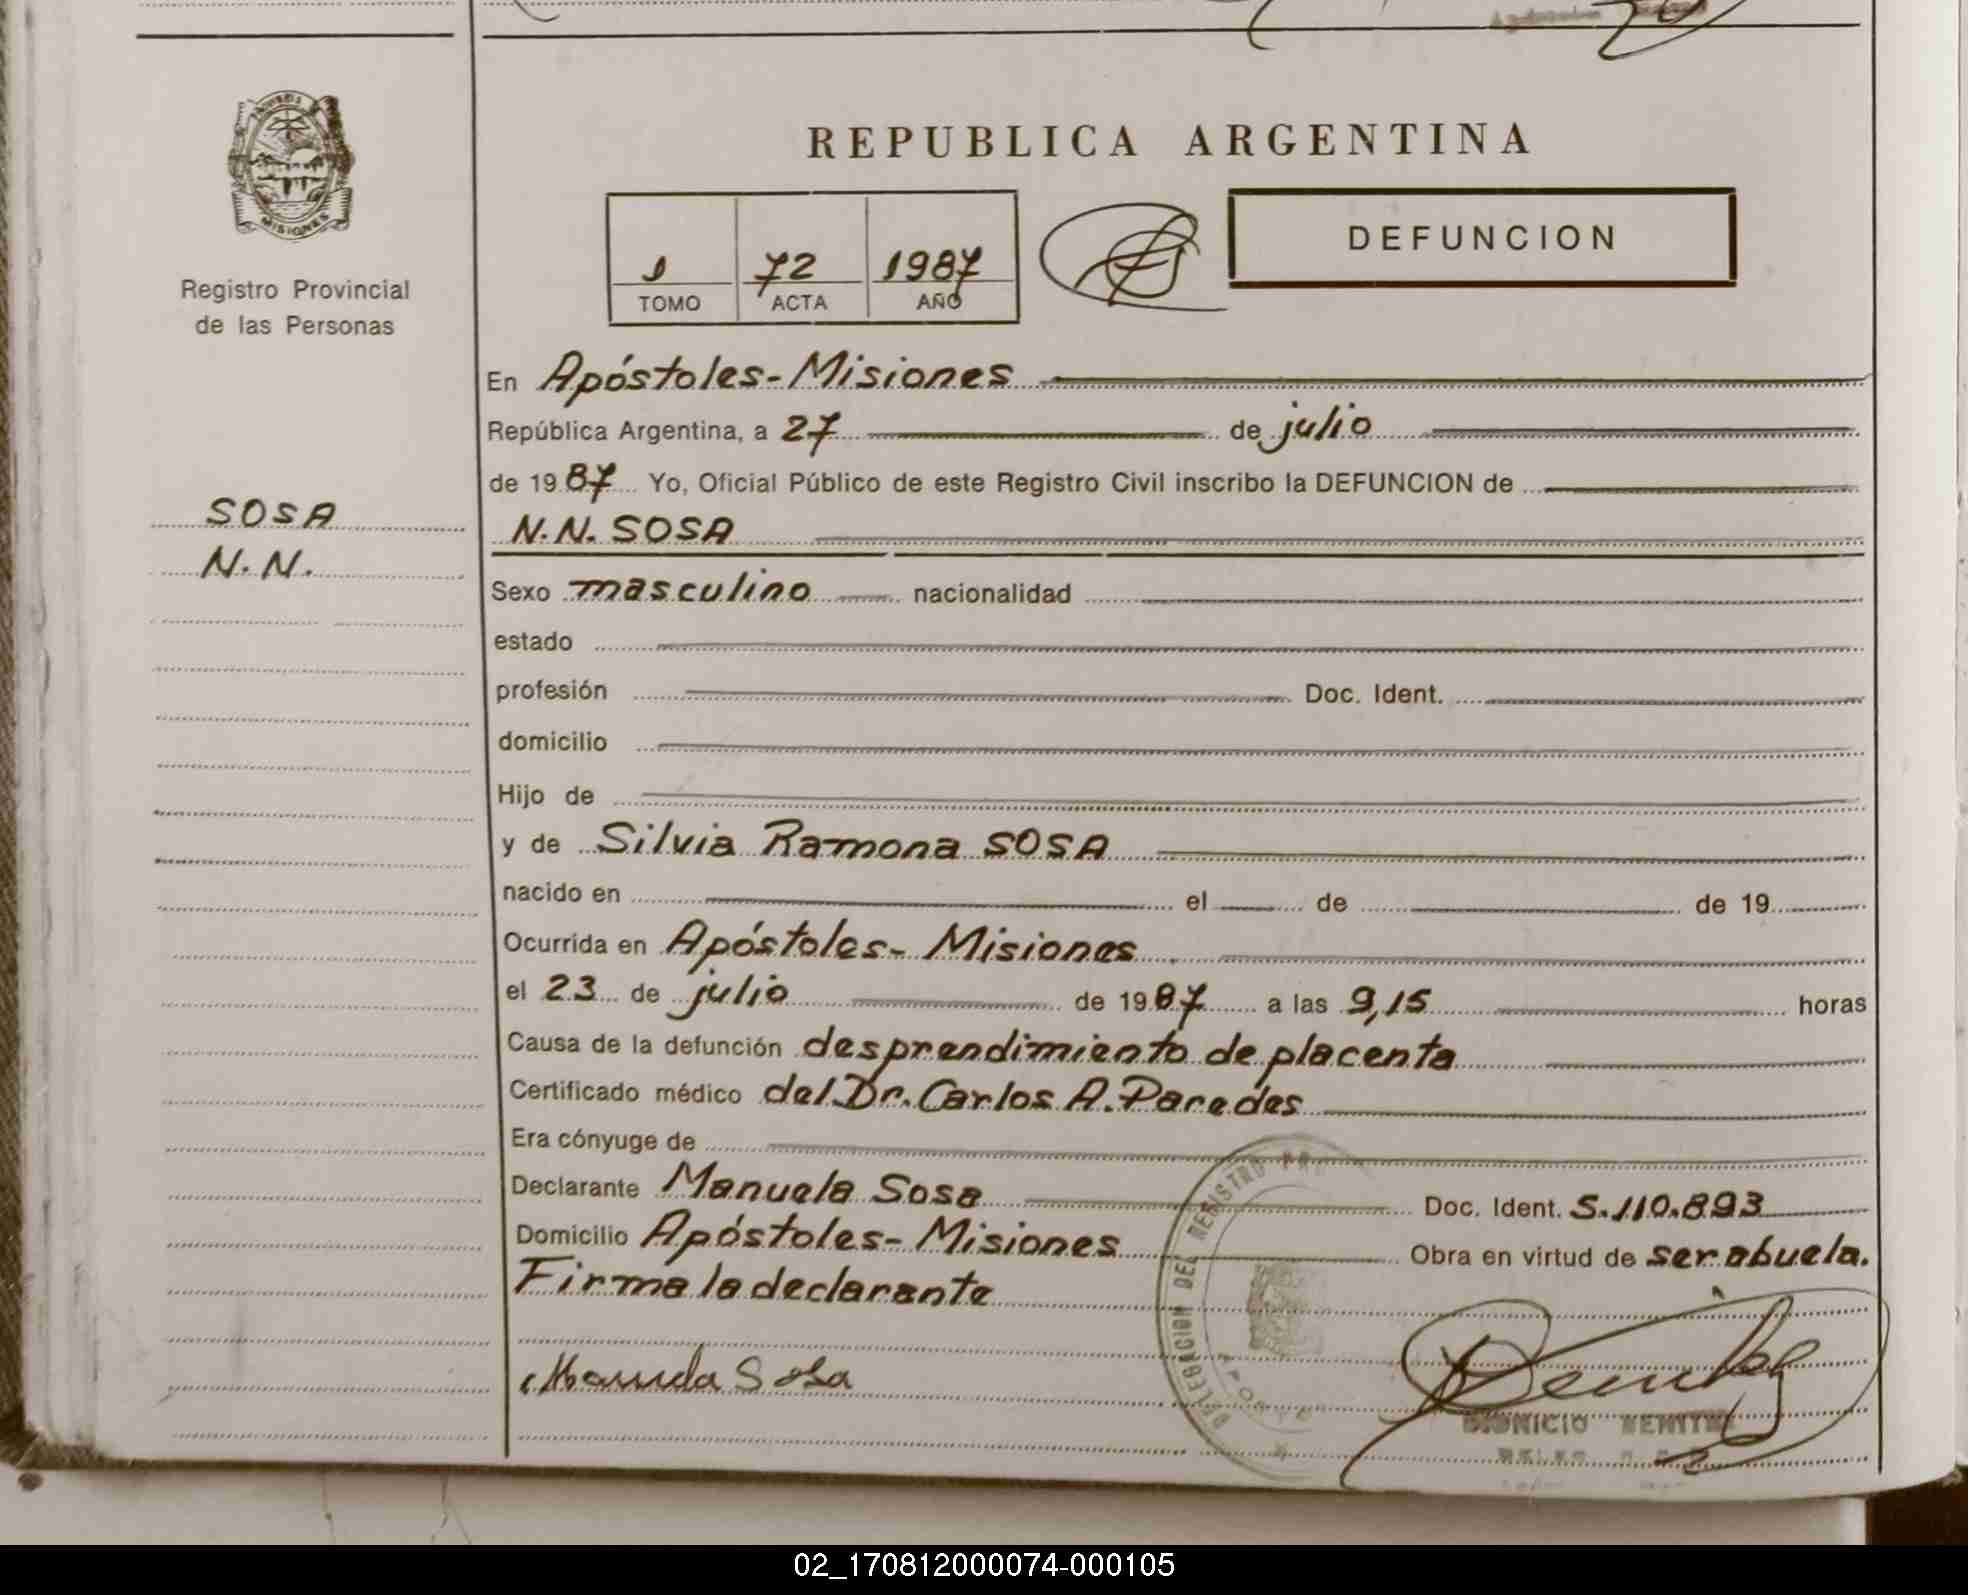 REPUBLICA ARGENTINA
MISIONES
Registro Provincial
de las Personas
1 72 1987
TOMO ACTA AÑO
DEFUNCION
En Apóstoles-Misiones
República Argentina, a 27 de julio
de 1987 Yo, Oficial Público de este Registro Civil inscribo la DEFUNCION de
SOSA
N.N.
N.N. SOSA
Sexo masculino nacionalidad
estado
profesión Doc. Ident.
domicilio
Hijo de
y de Silvia Ramona SOSA
nacido en el de de 19
Ocurrida en Apóstoles- Misiones
el 23 de julio de 1987 a las 9,15 horas
Causa de la defunción desprendimiento de placenta
Certificado médico del Dr. Carlos A. Paredes
Era cónyuge de
Declarante Manuela Sosa Doc. Ident. 5.110.893
Domicilio Apóstoles-Misiones Obra en virtud de ser abuela.
Firma la declarante
DELEGACION DEL REGISTRO
Manuela Sosa
DIONICIO BENITEZ
02_170812000074-000105